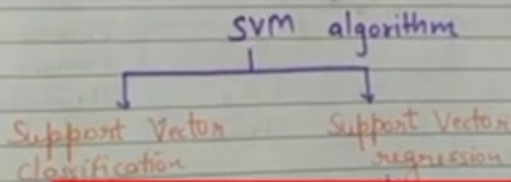 SVM algorithm
Support Vector classification
Support Vector regression